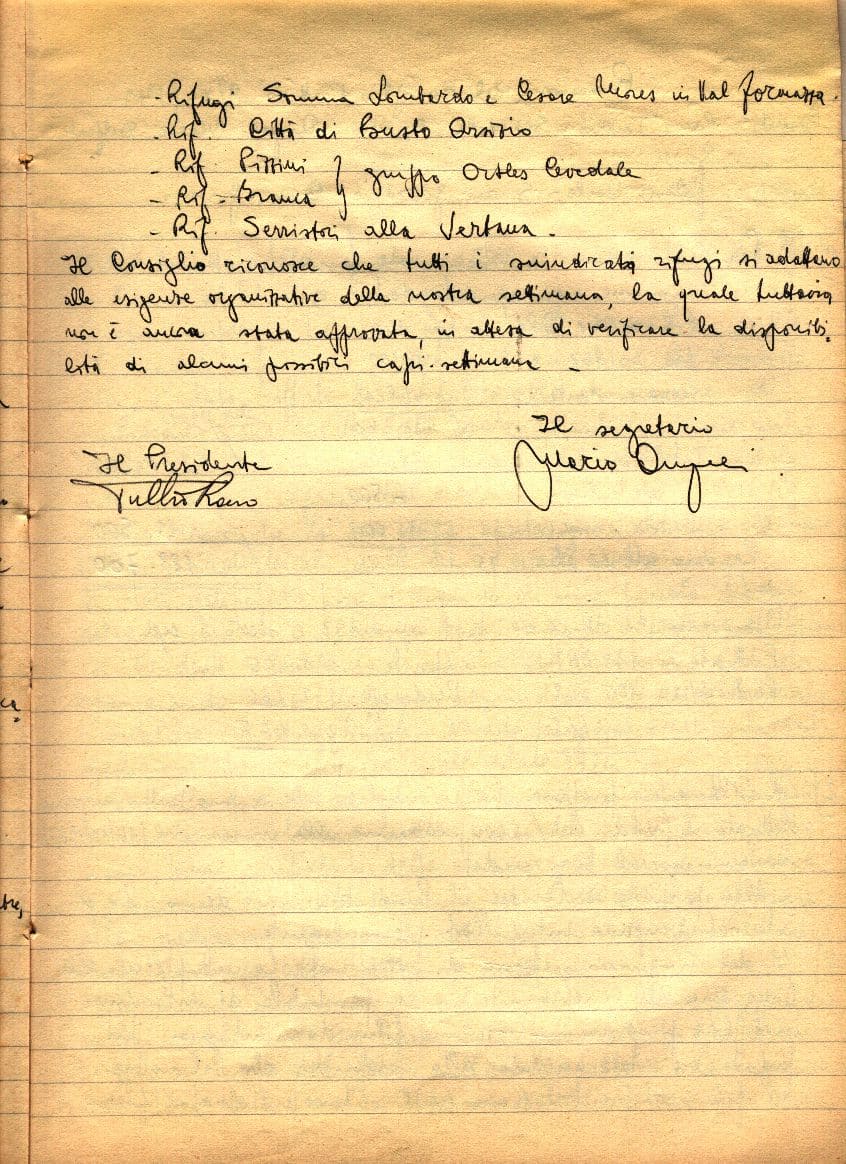 - Rifugi Somma Lombardo e Cesare Mores in Val Formazza.
- Rif. Città di Busto Arsizio
- Rif. Pizzini } gruppo Ortles Cevedale
- Rif. Branca
- Rif. Serristori alla Vertana.
Il Consiglio riconosce che tutti i suindicati rifugi si adattano
alle esigenze organizzative della nostra settimana, la quale tuttavia
non è ancora stata approvata, in attesa di verificare la disponibi-
lità di alcuni possibili capi-settimana -
Il segretario
Mario
Il Presidente
Tullio